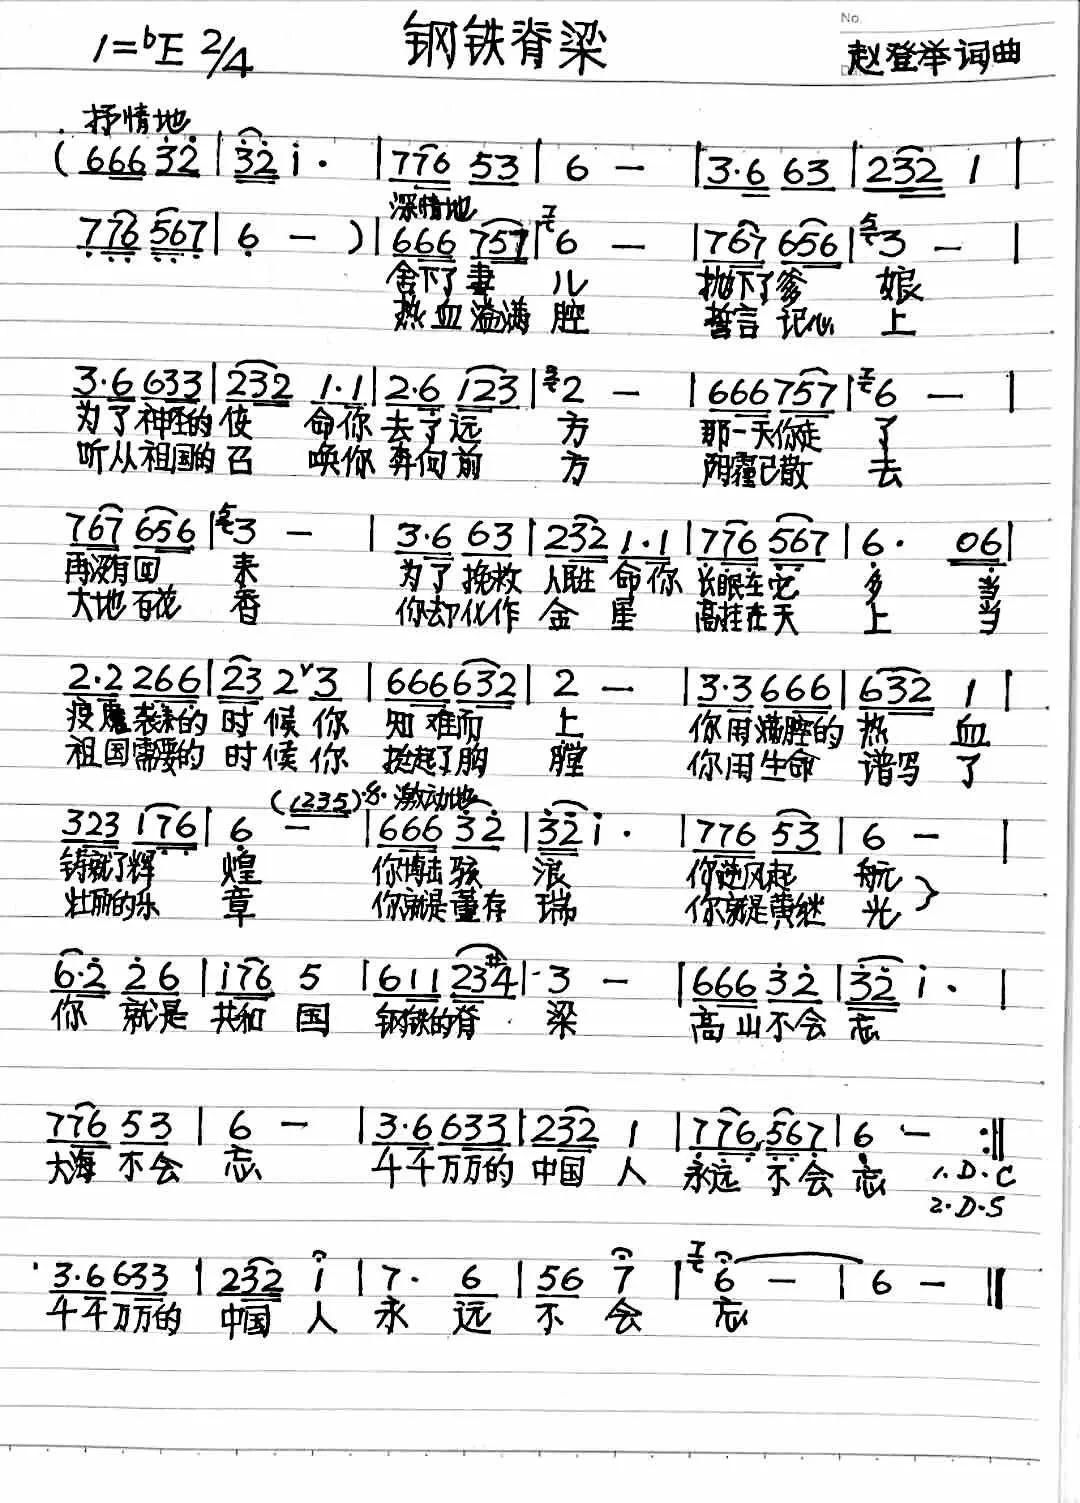 钢铁脊梁
No.
1=♭E 2/4
赵登举词曲
抒情地
(666 32 | 32 i· | 776 53 | 6 — | 3·6 63 | 232 1 |
深情地
776 567 | 6 — ) | 666 757 | 6 — | 767 656 | 3 — |
舍下了妻 儿 抛下了爹 娘
热血溢满 腔 誓言记心 上
3·6 633 | 232 1·1 | 2·6 123 | 2 — | 666 757 | 6 — |
为了神圣的使 命你去了远 方 那一天你走 了
听从祖国的召 唤你奔向前 方 阴霾已散 去
767 656 | 3 — | 3·6 63 | 232 1·1 | 776 567 | 6· 06 |
再没有回 来 为了挽救人民生命你长眠在它 乡 当
大地百花 香 你却化作金星 高挂在天 上 当
2·2 266 | 23 2ˇ3 | 666 632 | 2 — | 3·3 666 | 632 1 |
疫魔袭来的时候你 知难而 上 你用满腔的热 血
祖国需要的时候你 挺起了胸 膛 你用生命 谱写了
(1235) 激动地
323 176 | 6 — | 666 32 | 32 i· | 776 53 | 6 — |
铸就了辉 煌 你搏击骇 浪 你逆风起 航
壮丽的乐 章 你就是董存 瑞 你就是黄继 光
6·2 26 | i76 5 | 611 23#4 | 3 — | 666 32 | 32 i· |
你 就是 共和 国 钢铁的脊 梁 高山不会忘
776 53 | 6 — | 3·6 633 | 232 1 | 776 567 | 6 — :‖
大海不会 忘 千千万万的中国 人 永远不会忘 1.D.C
2.D.S
3·6 633 | 232 i | 7· 6 | 56 7 | 6 — | 6 — ‖
千千万万的 中国 人 永 远 不 会 忘